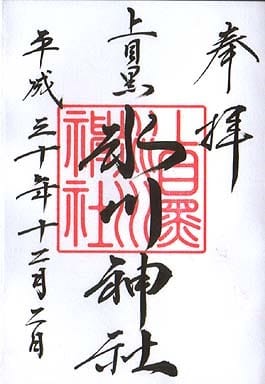 奉拝
上目黒
氷川神社
上目黒氷川神社
平成三十年十二月二日